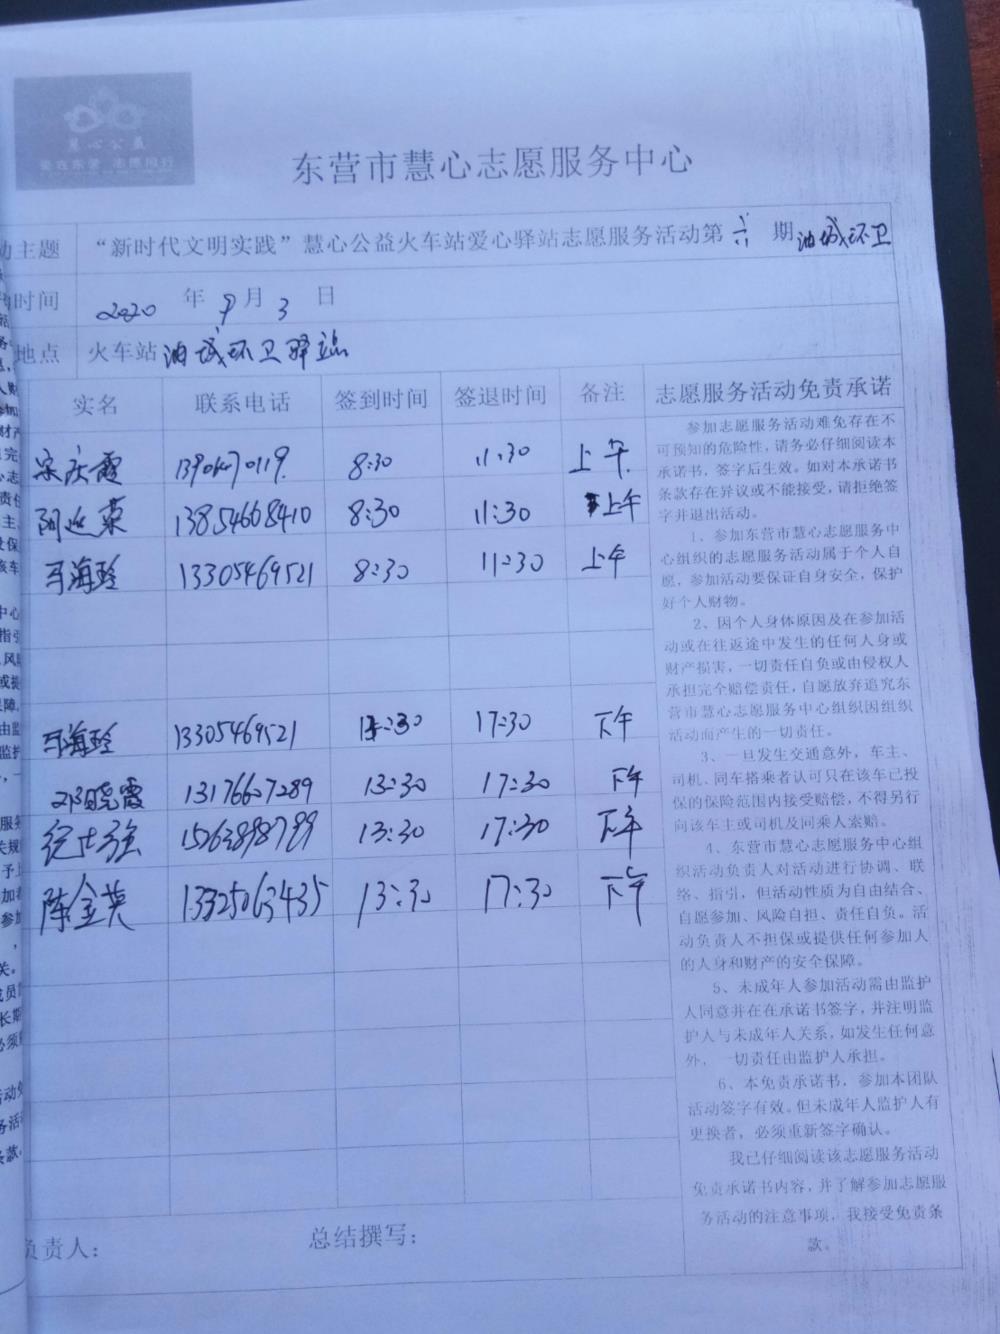 慧心公益
爱在东营 志愿同行
东营市慧心志愿服务中心
动主题 “新时代文明实践”慧心公益火车站爱心驿站志愿服务活动第六期油城环卫
时间 2020年9月3日
地点 火车站油城环卫驿站
实名 联系电话 签到时间 签退时间 备注
宋庆霞 8:30 11:30 上午
13854668410 8:30 11:30 上午
马海玲 13305469521 8:30 11:30 上午
马海玲 13305469521 17:30 下午
邓晓霞 13176607289 13:30 17:30 下午
13:30 17:30 下午
陈金英 13325063435 13:30 17:30 下午
负责人： 总结撰写：
志愿服务活动免责承诺
参加志愿服务活动难免存在不
可预知的危险性，请务必仔细阅读本
承诺书，签字后生效。如对本承诺书
条款存在异议或不能接受，请拒绝签
字并退出活动。
1、参加东营市慧心志愿服务中
心组织的志愿服务活动属于个人自
愿，参加活动要保证自身安全，保护
好个人财物。
2、因个人身体原因及在参加活
动或在往返途中发生的任何人身或
财产损害，一切责任自负或由侵权人
承担完全赔偿责任，自愿放弃追究东
营市慧心志愿服务中心组织因组织
活动而产生的一切责任。
3、一旦发生交通意外，车主、
司机、同车搭乘者认可只在该车已投
保的保险范围内接受赔偿，不得另行
向该车主或司机及同乘人索赔。
4、东营市慧心志愿服务中心组
织活动负责人对活动进行协调、联
络、指引，但活动性质为自由结合、
自愿参加、风险自担、责任自负。活
动负责人不担保或提供任何参加人
的人身和财产的安全保障。
5、未成年人参加活动需由监护
人同意并在在承诺书签字，并注明监
护人与未成年人关系，如发生任何意
外，一切责任由监护人承担。
6、本免责承诺书，参加本团队
活动签字有效。但未成年人监护人有
更换者，必须重新签字确认。
我已仔细阅读该志愿服务活动
免责承诺书内容，并了解参加志愿服
务活动的注意事项，我接受免责条
款。